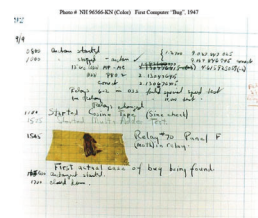 Photo # NH 96566-KN (Color) First Computer "Bug", 1947
9/9
0800 Antan started
1000 " stopped - antan ✓
13" uc (032) MP - MC
033 PRO 2 2.130476415
2.130676415
Relays 6-2 in 033 failed special speed test
in relay
Relays changed
1100 Started Cosine Tape (Sine check)
1525 Started Multi Adder Test.
1545 Relay #70 Panel F
(moth) in relay.
First actual case of bug being found.
antangent started.
1700 closed down.